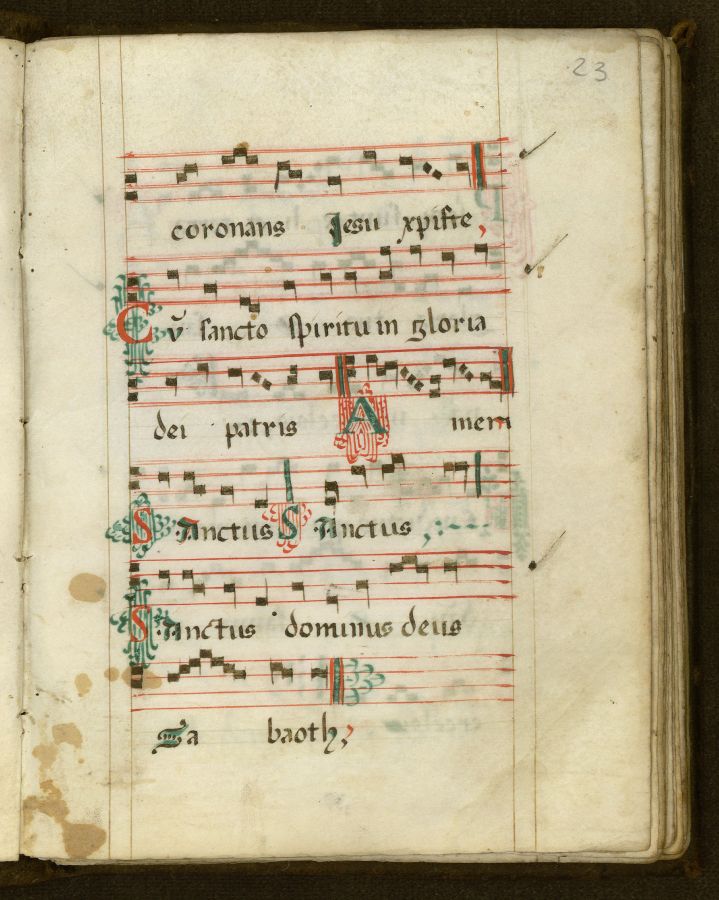 23
coronans Jesu xpiste,
Cū sancto spiritu in gloria
dei patris Amen
Sanctus Sanctus
Sanctus dominus deus
Sa baoth,